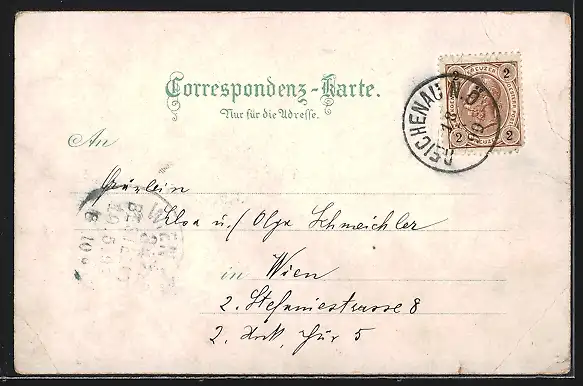 Correspondenz-Karte.
Nur für die Adresse.
2 KREUZER 2
2 2
REICHENAU N.Ö.
An
Fräulein
u. Olga Schmeichler
in Wien
2. Stefaniestrasse 8
2. Stock, Tür 5
WIEN